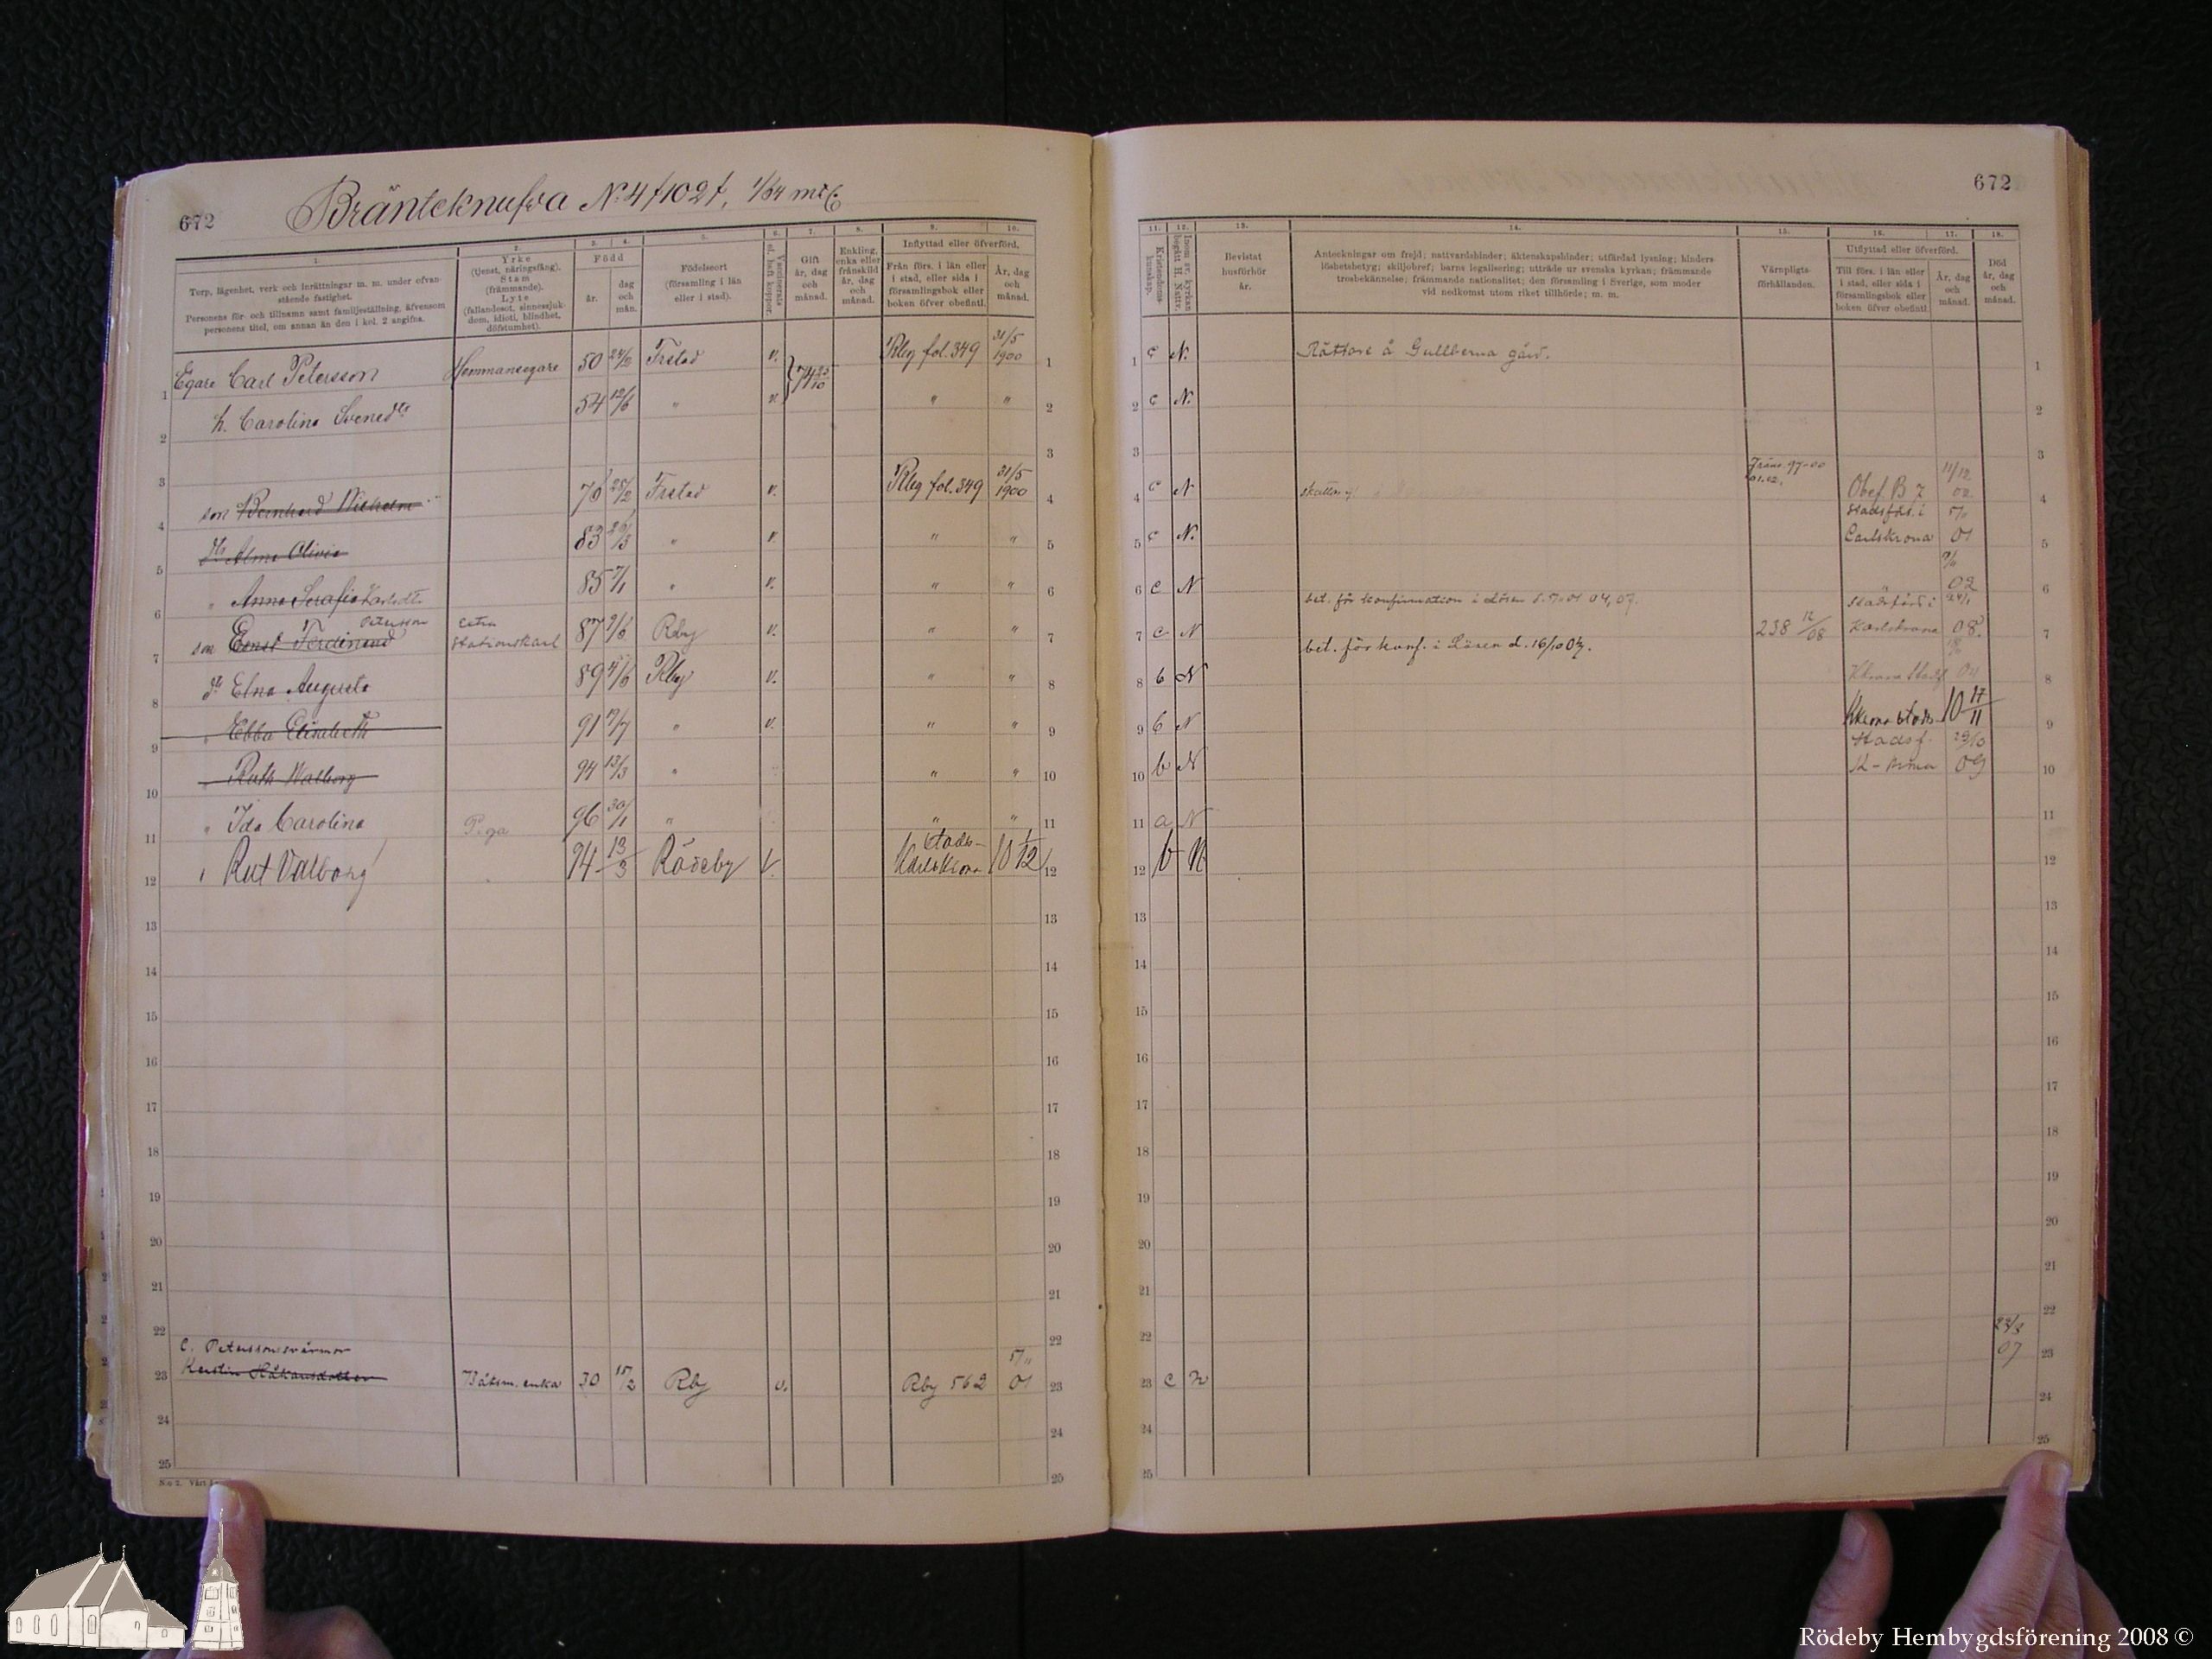 672
Bränteknufva N:4
1. 2. 3. 4. 5. 6. 7. 8. 9. 10.
Torp, lägenhet, verk och inrättningar m. m. under ofvanstående fastighet.
Personens för- och tillnamn samt familjeställning, äfvensom personens titel, om annan än den i kol. 2 angifna.
Yrke (tjenst, näringsfång). Stam (främmande). Lyte (fallandesot, sinnessjukdom, idioti, blindhet, döfstumhet).
Född
år. dag och mån.
Födelseort (församling i län eller i stad).
Vaccinerats el. haft koppor.
Gift år, dag och månad.
Enkling, enka eller frånskild år, dag och månad.
Inflyttad eller öfverförd.
Från förs. i län eller i stad, eller sida i församlingsbok eller boken öfver obefintl.
År, dag och månad.
1 Egare Carl Petersson Hemmansegare 50 Frstad v. Rby fol. 349 31/5 1900 1
2 h. Carolina Svensdtr 54 12/6 " v. " " 2
3 3
4 son Bernhard Wilhelm 76 28/2 Frstad v. Rby fol. 349 31/5 1900 4
5 dtr Alma Olivia 83 " v. " " 5
6 " Anna Serafia 85 " v. " " 6
7 son Ernst Ferdinand Petersson extra Stationskarl 87 Rby v. " " 7
8 dtr Elna Augusta 89 Rby v. " " 8
9 " Ebba Elisabeth 91 " v. " " 9
10 " Ruth Walborg 94 13/3 " " " 10
11 " Ida Carolina Piga 96 30/1 " " " 11
12 " Rut Valborg 94 13/3 Rödeby v. Stads- Karlskrona 10 1/12 12
13 13
14 14
15 15
16 16
17 17
18 18
19 19
20 20
21 21
22 22
C. Peterssons svärmor
23 Kerstin Håkansdotter Båtsm. enka 30 15/2 Rby v. Rby 562 5/11 01 23
24 24
25 25
672
11. 12. 13. 14. 15. 16. 17. 18.
Kristendomskunskap.
Inom sv. kyrkan begått H. Nattv.
Bevistat husförhör år.
Anteckningar om frejd; nattvardshinder; äktenskapshinder; utfärdad lysning; hinderslöshetsbetyg; skiljobref; barns legalisering; utträde ur svenska kyrkan; främmande trosbekännelse; främmande nationalitet; den församling i Sverige, som moder vid nedkomst utom riket tillhörde; m. m.
Värnpligtsförhållanden.
Utflyttad eller öfverförd.
Till förs. i län eller i stad, eller sida i församlingsbok eller boken öfver obefintl.
År, dag och månad.
Död år, dag och månad.
1 c N. Rättare å Gullberna gård. 1
2 c N. 2
3 3
4 c N Obef. B 7 11/12 02 4
5 c N. Stadsförs. i Carlskrona 5/11 01 5
6 c N bet. för konfirmation i Lösen 02 6
7 c N bet. för konf. i Lösen d. 16/10 238 12/08 Stadsförs. i Karlskrona 08. 7
8 b N 04 8
9 b N Stads- 10 17/11 9
10 b N Stadsf. 29/10 09 10
11 a N 11
12 b N 12
13 13
14 14
15 15
16 16
17 17
18 18
19 19
20 20
21 21
22 22
23 c N 07 23
24 24
25 25
Rödeby Hembygdsförening 2008 ©